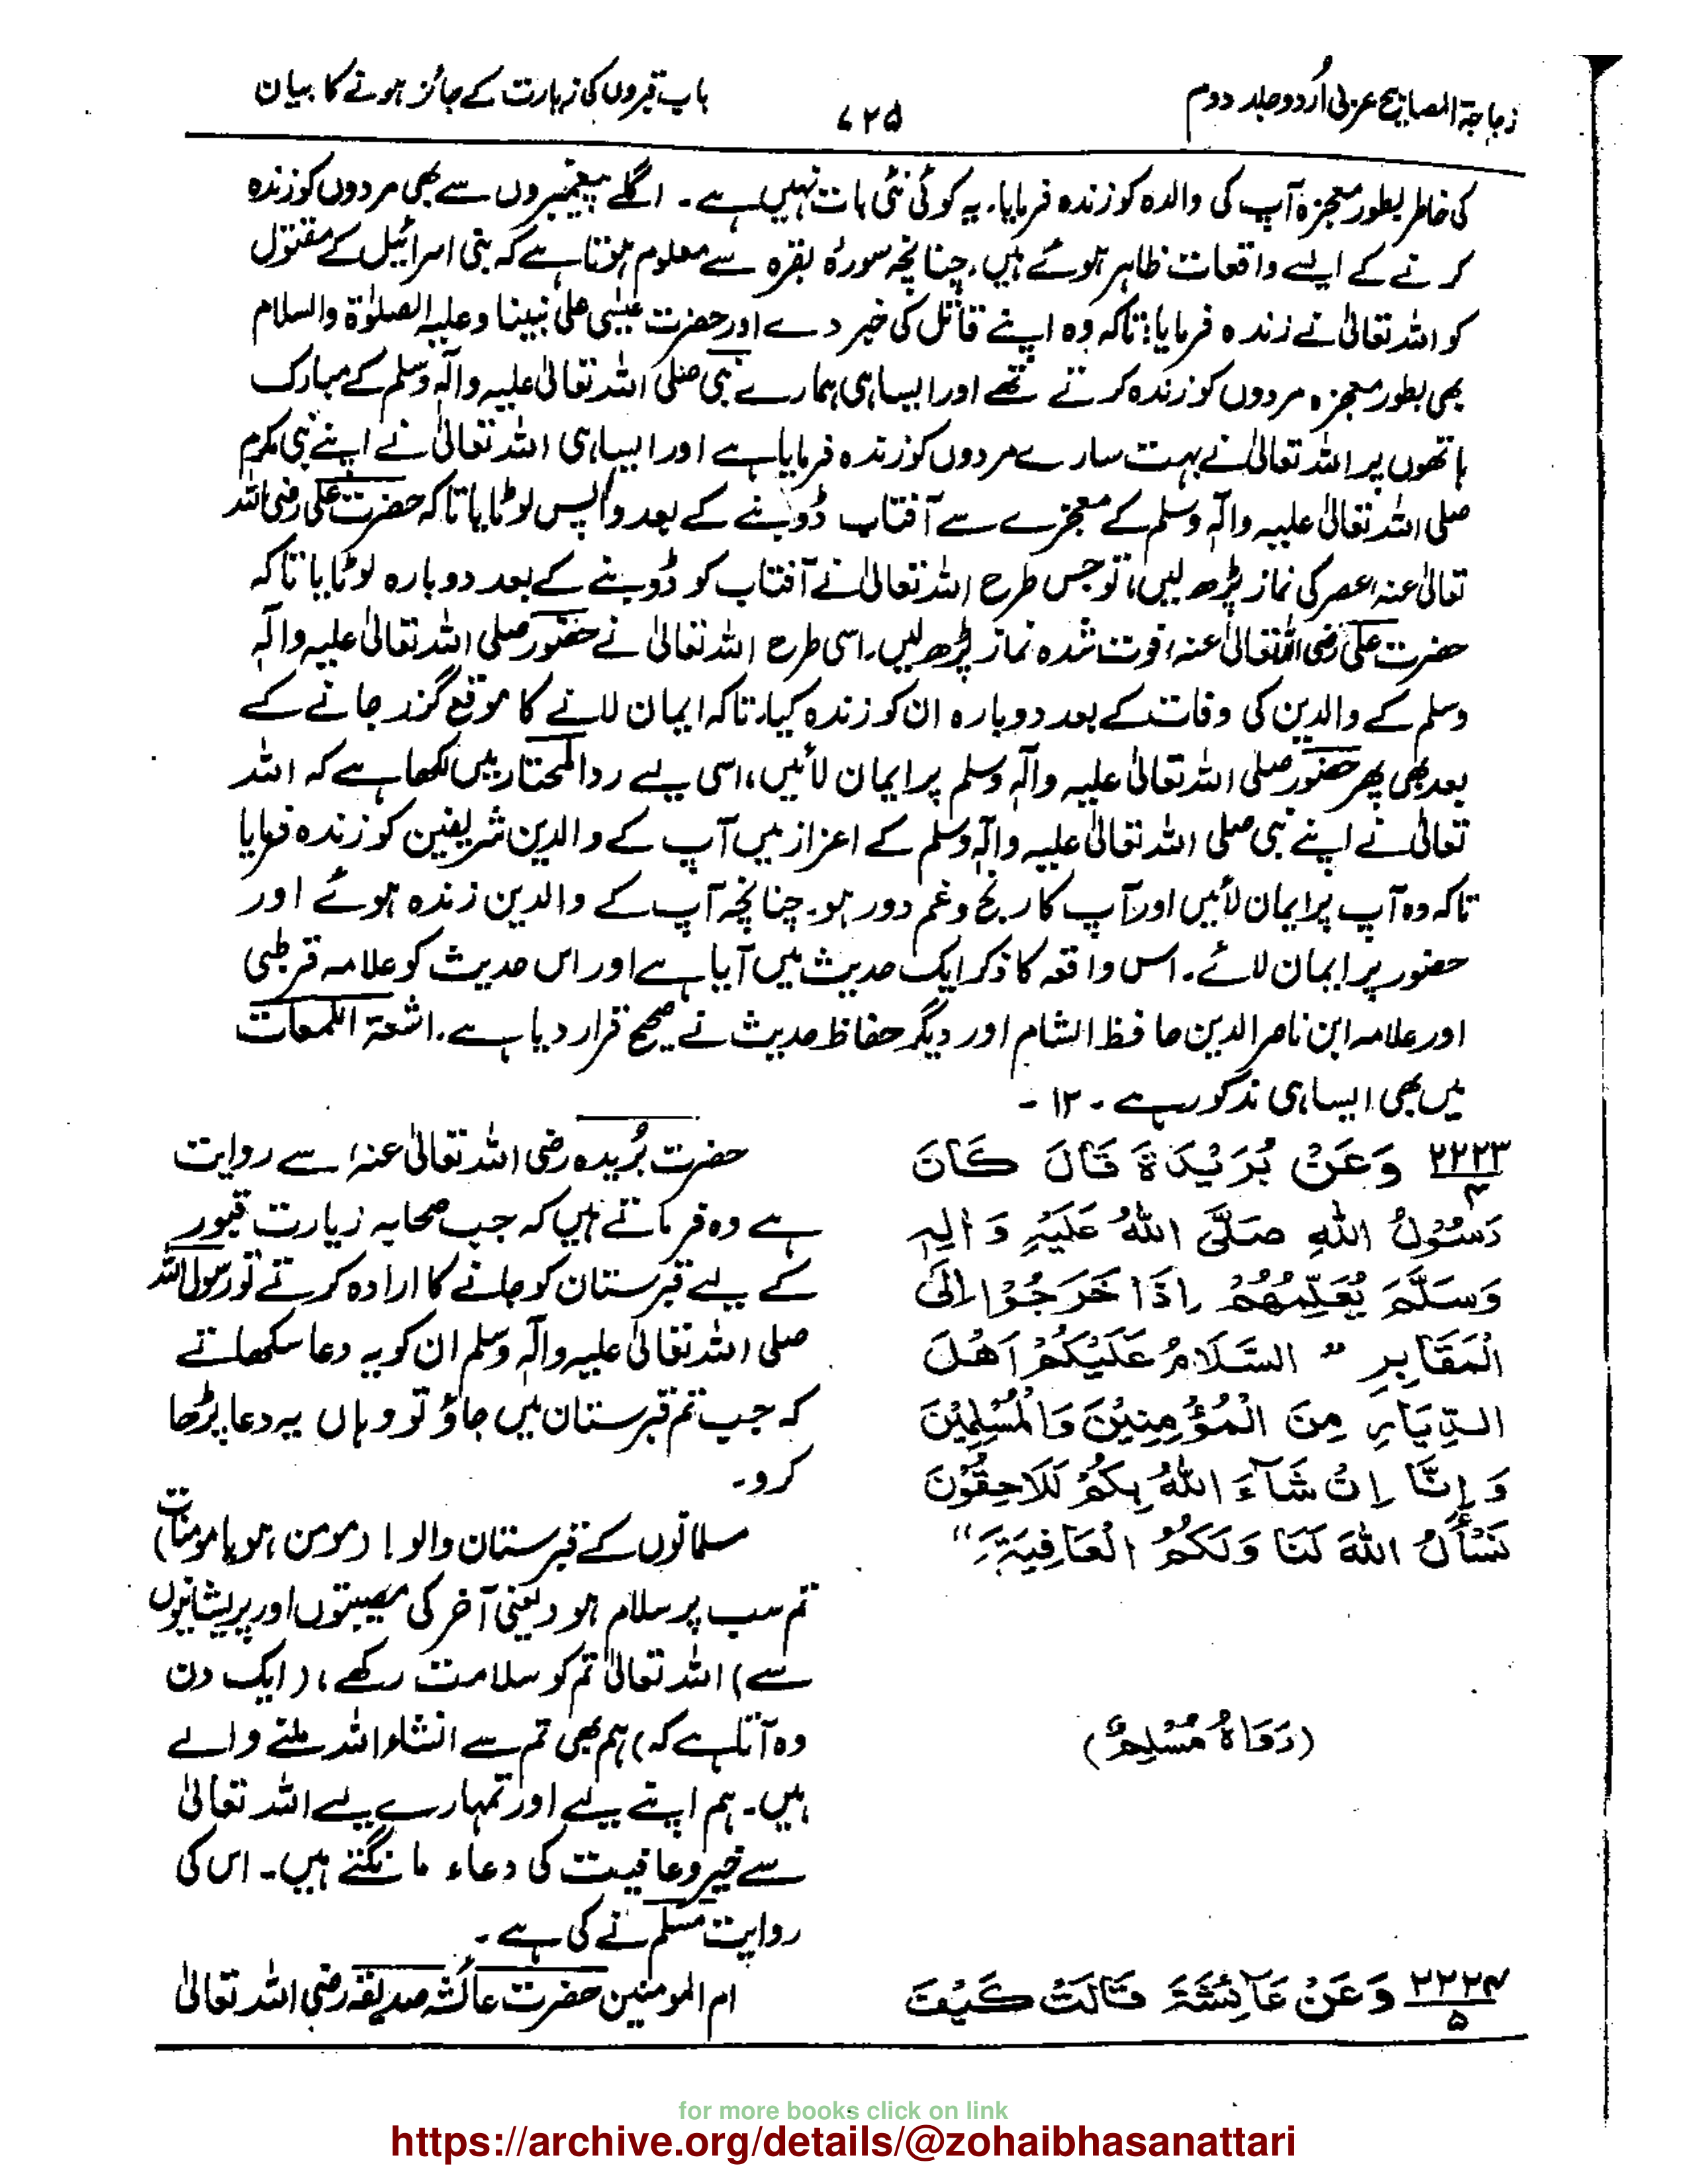 زجاجۃ المصابیح عربی اُردو جلد دوم
۷۲۵
باب قبروں کی زیارت کے جائز ہونے کا بیان
کی خاطر بطور معجزہ آپ کی والدہ کو زندہ فرمایا۔ یہ کوئی نئی بات نہیں ہے۔ اگلے پیغمبروں سے بھی مردوں کو زندہ
کرنے کے ایسے واقعات ظاہر ہوئے ہیں۔ چنانچہ سورۂ بقرہ سے معلوم ہوتا ہے کہ بنی اسرائیل کے مقتول
کو اللہ تعالیٰ نے زندہ فرمایا: تاکہ وہ اپنے قاتل کی خبر دے اور حضرت عیسٰی علی نبینا و علیہ الصلوٰۃ والسلام
بھی بطور معجزہ مردوں کو زندہ کرتے تھے اور ایسا ہی ہمارے نبی صلی اللہ تعالیٰ علیہ واٰلہٖ وسلم کے مبارک
ہاتھوں پر اللہ تعالیٰ نے بہت سارے مردوں کو زندہ فرمایا ہے اور ایسا ہی اللہ تعالیٰ نے اپنے نبی مکرم
صلی اللہ تعالیٰ علیہ واٰلہٖ وسلم کے معجزے سے آفتاب ڈوبنے کے بعد واپس لوٹایا تاکہ حضرت علی رضی اللہ
تعالیٰ عنہ، عصر کی نماز پڑھ لیں، تو جس طرح اللہ تعالیٰ نے آفتاب کو ڈوبنے کے بعد دوبارہ لوٹایا تاکہ
حضرت علی رضی اللہ تعالیٰ عنہ، فوت شدہ نماز پڑھ لیں۔ اسی طرح اللہ تعالیٰ نے حضور صلی اللہ تعالیٰ علیہ واٰلہٖ
وسلم کے والدین کی وفات کے بعد دوبارہ ان کو زندہ کیا، تاکہ ایمان لانے کا موقع گزر جانے کے
بعد بھی پھر حضور صلی اللہ تعالیٰ علیہ واٰلہٖ وسلم پر ایمان لائیں، اسی لیے ردالمحتار میں لکھا ہے کہ اللہ
تعالیٰ نے اپنے نبی صلی اللہ تعالیٰ علیہ واٰلہٖ وسلم کے اعزاز میں آپ کے والدین شریفین کو زندہ فرمایا
تاکہ وہ آپ پر ایمان لائیں اور آپ کا رنج و غم دور ہو۔ چنانچہ آپ کے والدین زندہ ہوئے اور
حضور پر ایمان لائے۔ اس واقعہ کا ذکر ایک حدیث میں آیا ہے اور اس حدیث کو علامہ قرطبی
اور علامہ ابن ناصر الدین حافظ الشام اور دیگر حفاظ حدیث نے صحیح قرار دیا ہے۔ اشعۃ اللمعات
میں بھی ایسا ہی مذکور ہے۔ ۱۲۔
۲۲۲۳
۴
وَعَنْ بُرَيْدَةَ قَالَ كَانَ
رَسُوْلُ اللهِ صَلَّى اللهُ عَلَيْهِ وَاٰلِهٖ
وَسَلَّمَ يُعَلِّمُهُمْ اِذَا خَرَجُوْا اِلَى
الْمَقَابِرِ " السَّلَامُ عَلَيْكُمْ اَهْلَ
الدِّيَارِ مِنَ الْمُؤْمِنِيْنَ وَالْمُسْلِمِيْنَ
وَاِنَّا اِنْ شَآءَ اللهُ بِكُمْ لَلَاحِقُوْنَ
نَسْأَلُ اللهَ لَنَا وَلَكُمُ الْعَافِيَةَ"
(رَوَاهُ مُسْلِمٌ)
حضرت بُریدہ رضی اللہ تعالیٰ عنہ، سے روایت
ہے وہ فرماتے ہیں کہ جب صحابہ زیارت قبور
کے لیے قبرستان کو جانے کا ارادہ کرتے تو رسول اللہ
صلی اللہ تعالیٰ علیہ واٰلہٖ وسلم ان کو یہ دعا سکھلاتے
کہ جب تم قبرستان میں جاؤ تو وہاں یہ دعا پڑھا
کرو۔
مسلمانوں کے قبرستان والو! (مومن ہو یا مومنات)
تم سب پر سلام ہو (یعنی آخر کی مصیبتوں اور پریشانیوں
سے) اللہ تعالیٰ تم کو سلامت رکھے، (ایک دن
وہ آتا ہے کہ) ہم بھی تم سے انشاء اللہ ملنے والے
ہیں۔ ہم اپنے لیے اور تمہارے لیے اللہ تعالیٰ
سے خیر و عافیت کی دعاء مانگتے ہیں۔ اس کی
روایت مسلم نے کی ہے۔
۲۲۲۴
۵
وَعَنْ عَآئِشَةَ قَالَتْ كَيْفَ
ام المومنین حضرت عائشہ صدیقہ رضی اللہ تعالیٰ
for more books click on link
https://archive.org/details/@zohaibhasanattari